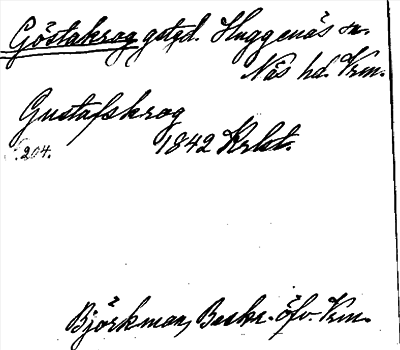 Göstakrog gstgd. Huggenäs sn.
Näs hd. Vrm.
Gustafskrog
1842 Krlst.
s. 204.
Björkman, Beskr. öfv. Vrm.